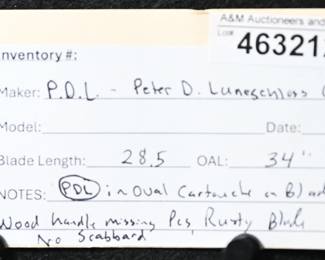 A&M Auctioneers and
Lot#
46321
Inventory #:
Maker: P.D.L. - Peter D. Luneschloss
Model: Date:
Blade Length: 28.5 OAL: 34"
NOTES: PDL in oval Cartouche on Blade
Wood handle missing Pcs, Rusty Blade
No Scabbard